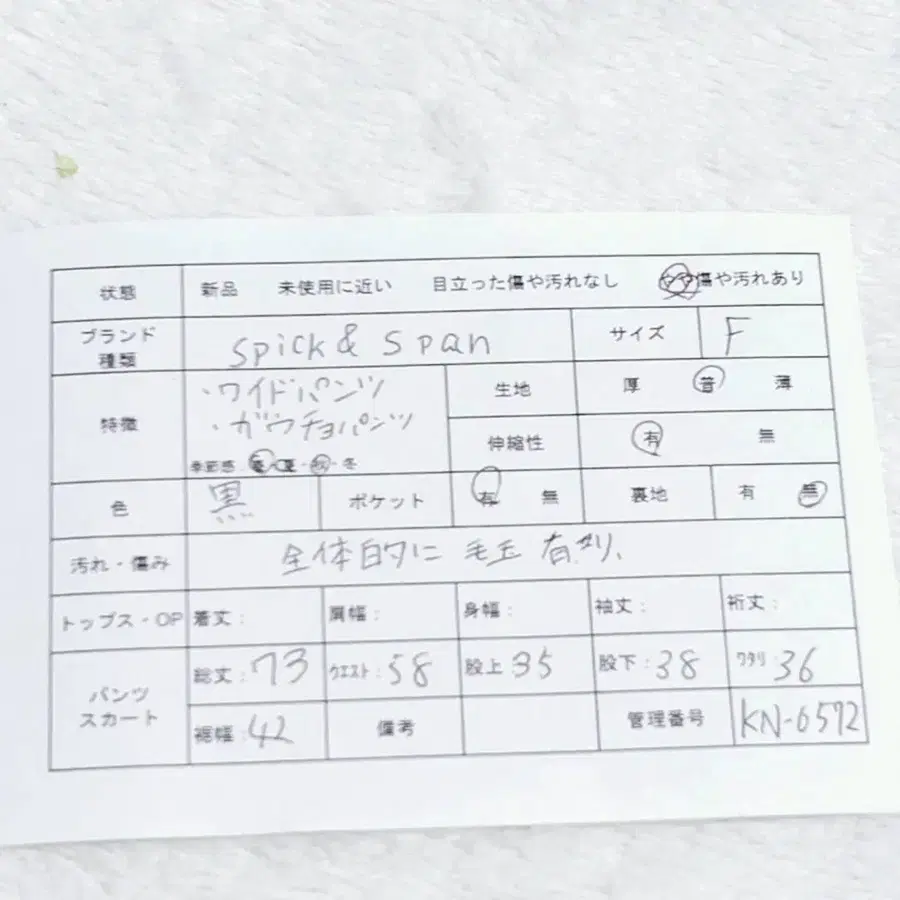 状態 新品 未使用に近い 目立った傷や汚れなし やや傷や汚れあり
ブランド 種類 spick & span サイズ F
特徴 ・ワイドパンツ 生地 厚 普 薄
・ガウチョパンツ 伸縮性 有 無
季節感 : 春・夏・秋・冬
色 黒 ポケット 有 無 裏地 有 無
汚れ・傷み 全体的に 毛玉 有り、
トップス・OP 着丈: 肩幅: 身幅: 袖丈: 裄丈:
パンツ スカート 総丈:73 ウエスト:58 股上 35 股下:38 ワタリ:36
裾幅:42 備考 管理番号 KN-6572